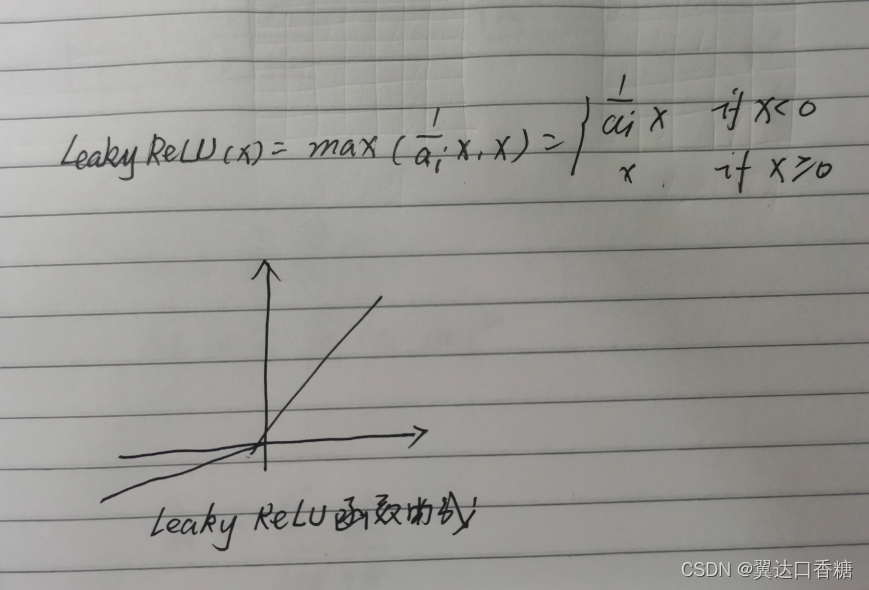 Leaky ReLU(x) = max(1/ai x, x) = { 1/ai x if x<0
x, if x≥0
Leaky ReLU函数
CSDN @翼达口香糖